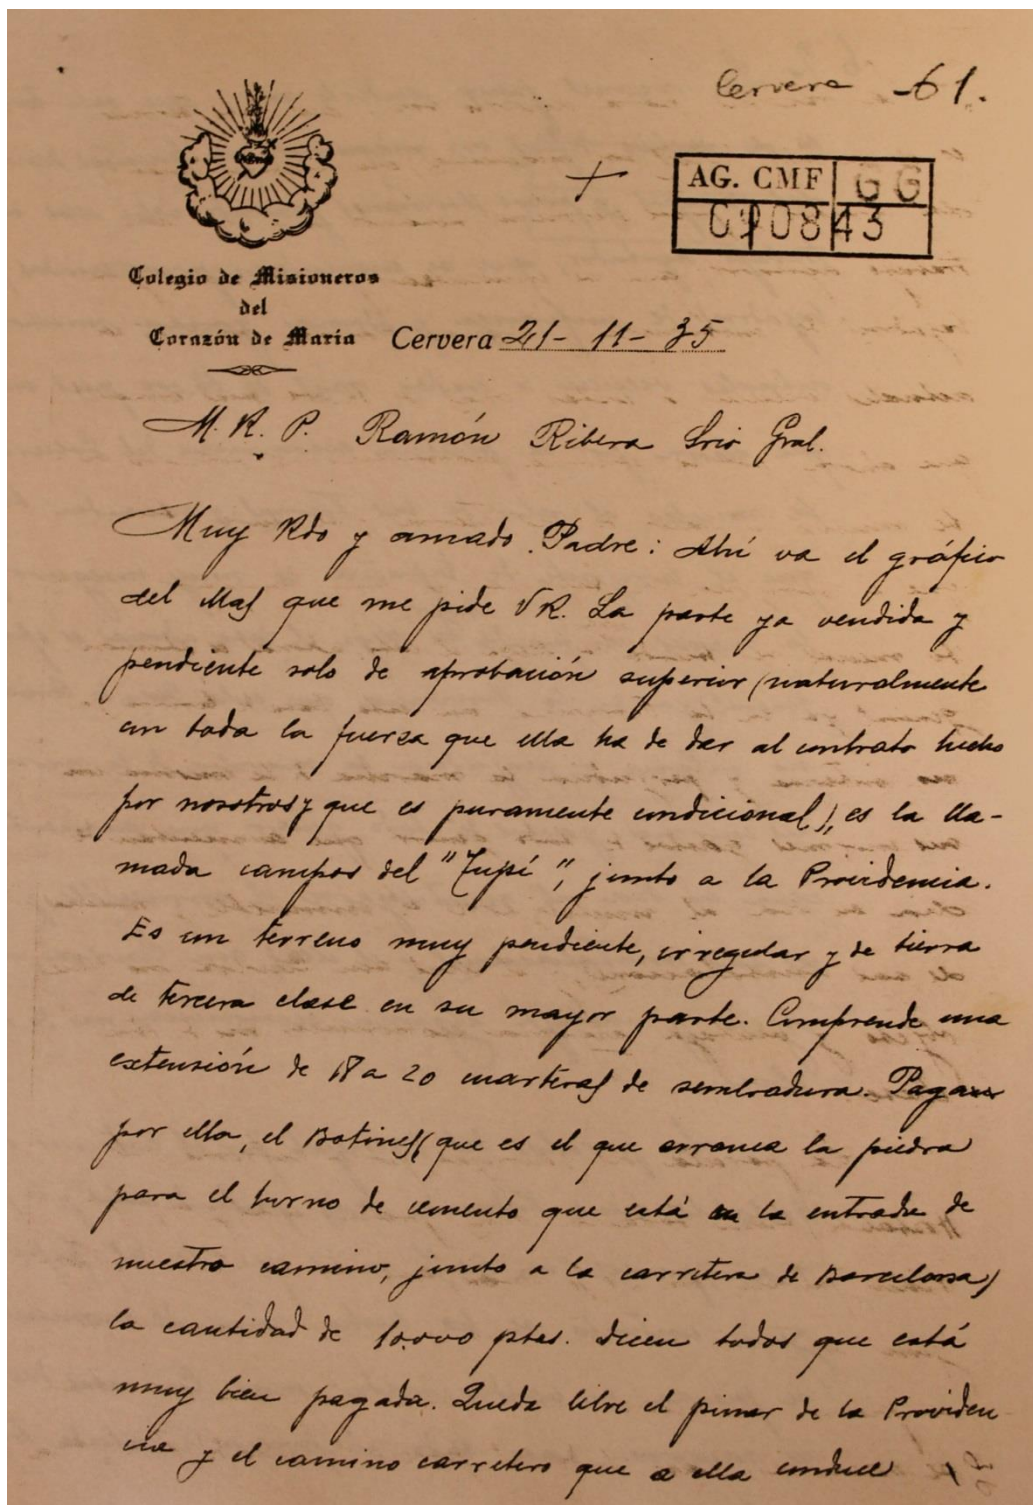 Cervera 61.
AG. CMF GG
090843
Colegio de Misioneros
del
Corazón de Maria
Cervera 21- 11- 35
M. R. P. Ramón Ribera Srio Gral.
Muy Rdo y amado Padre: Ahí va el gráfico
del Mas que me pide VR. La parte ya vendida y
pendiente solo de aprobación superior (naturalmente
con toda la fuerza que ella ha de dar al contrato hecho
por nosotros y que es puramente condicional), es la lla-
mada campos del "Tupí", junto a la Providencia.
Es un terreno muy pendiente, irregular y de tierra
de tercera clase en su mayor parte. Comprende una
extensión de 18 a 20 cuarteras de sembradura. Pagan
por ella, el Botines (que es el que arranca la piedra
para el horno de cemento que está en la entrada de
nuestro camino, junto a la carretera de Barcelona)
la cantidad de 10.000 ptes. Dicen todos que está
muy bien pagada. Queda libre el pinar de la Providen
cia y el camino carretero que a ella conduce